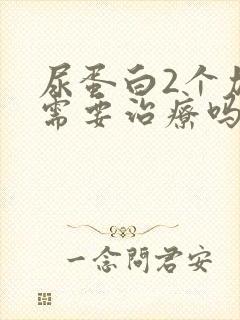 尿蛋白2个
需要治療吗
一念問君安